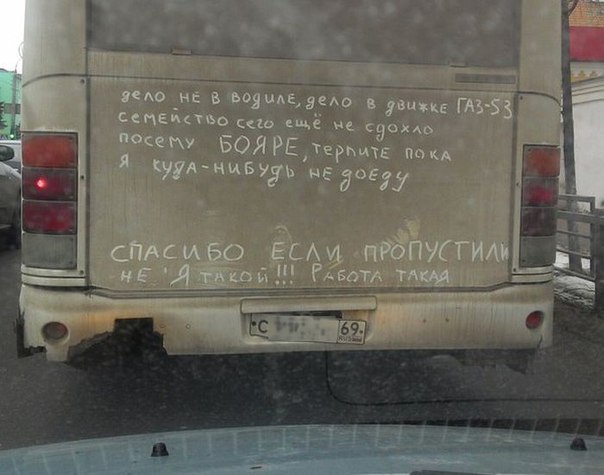 дело не в водиле, дело в движке ГАЗ-53
семейство сего ещё не сдохло
посему БОЯРЕ, терпите пока
я куда-нибудь не доеду
СПАСИБО ЕСЛИ ПРОПУСТИЛИ
НЕ Я ТАКОЙ!!! РАБОТА ТАКАЯ
С 69